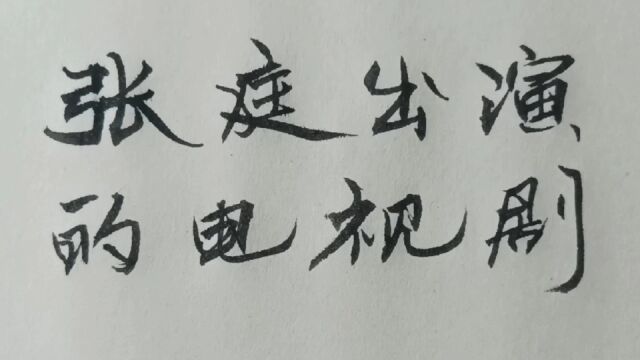 张庭出演
的电视剧